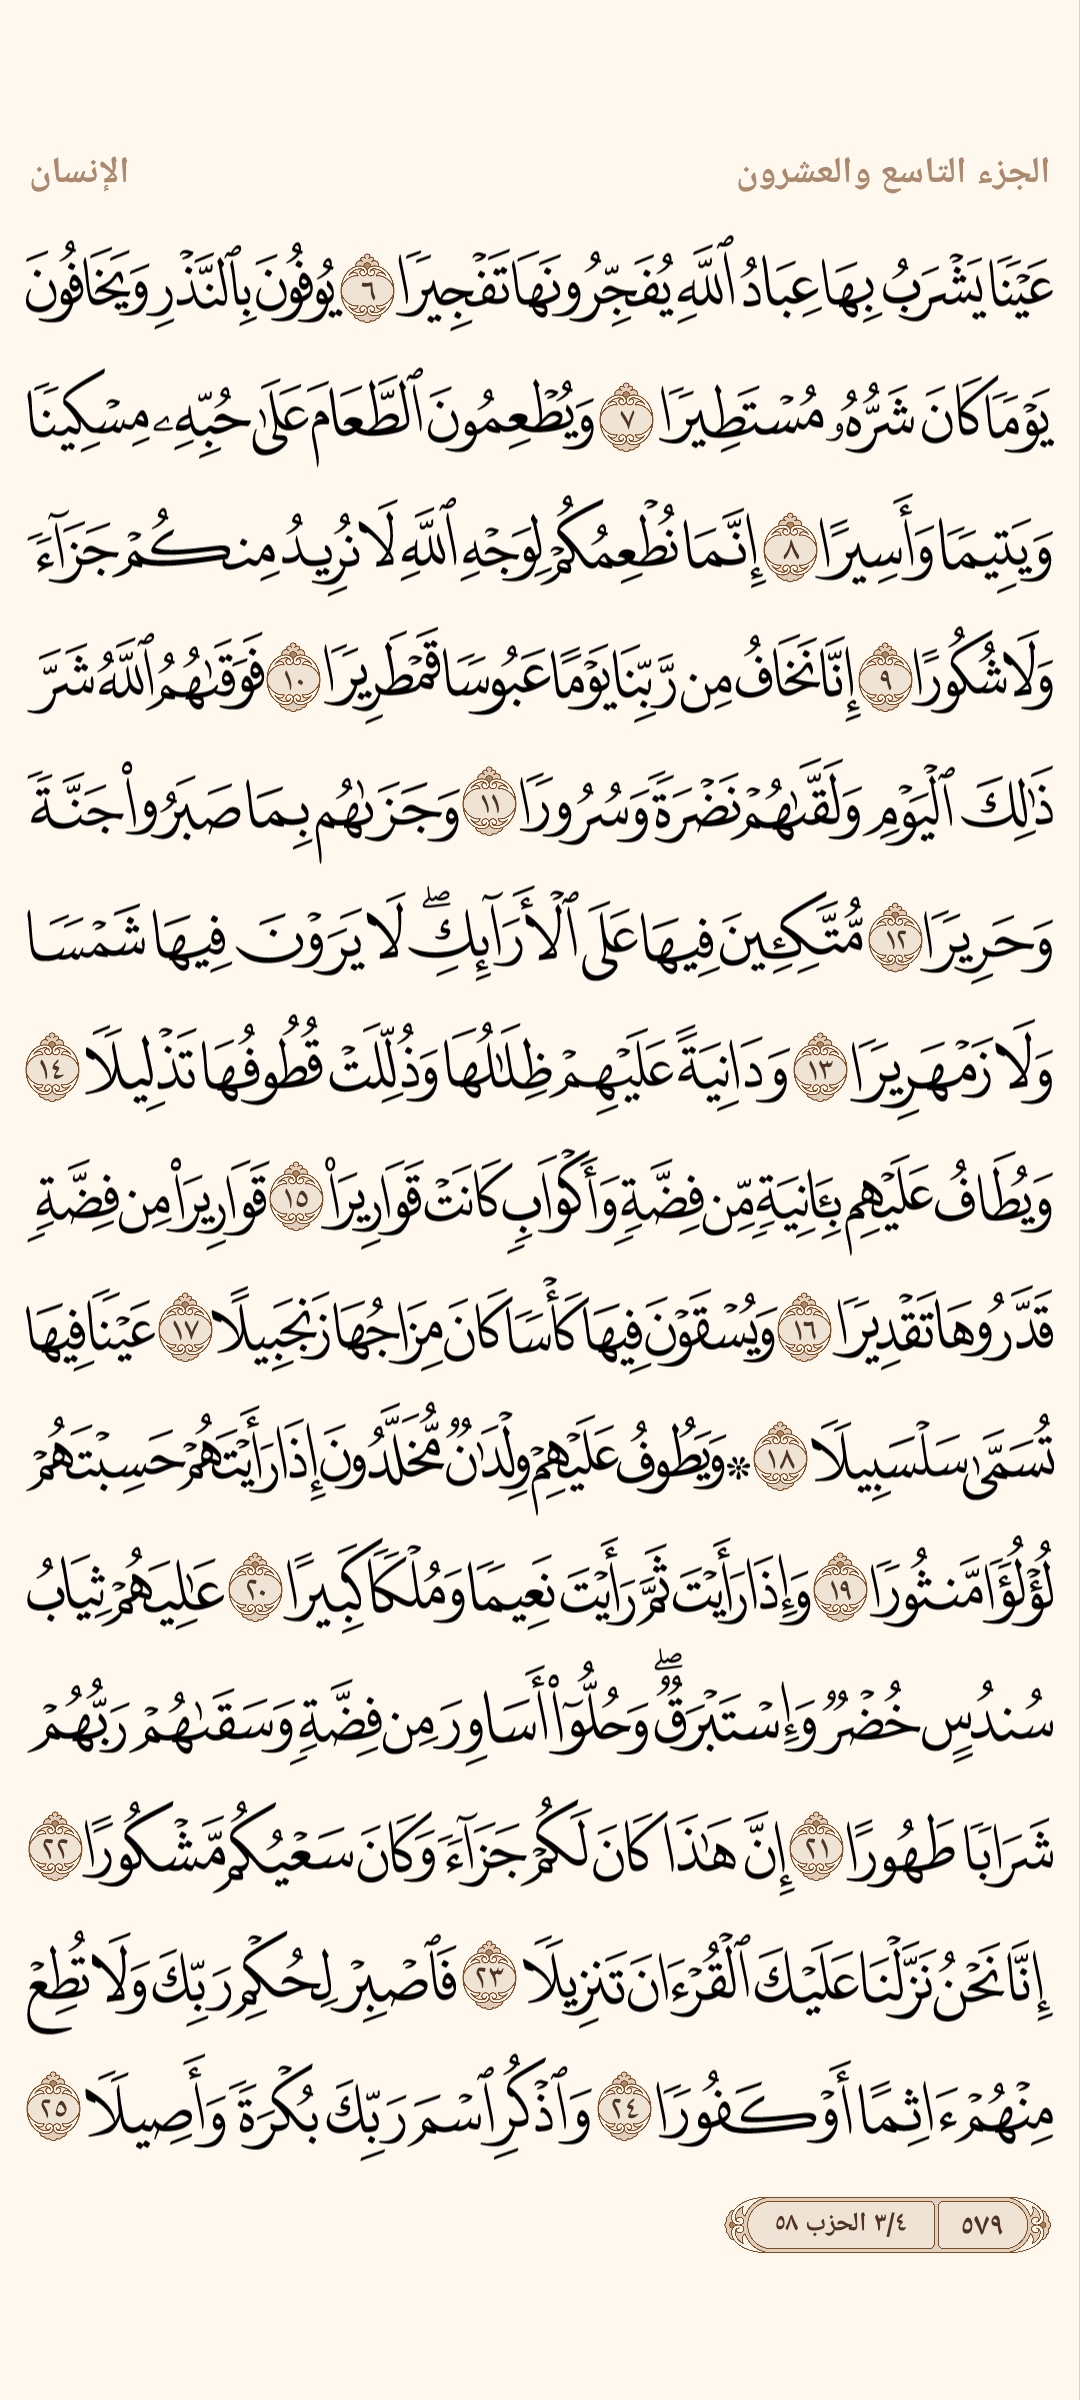 الجزء التاسع والعشرون
الإنسان
عَيۡنٗا يَشۡرَبُ بِهَا عِبَادُ ٱللَّهِ يُفَجِّرُونَهَا تَفۡجِيرٗا ٦ يُوفُونَ بِٱلنَّذۡرِ وَيَخَافُونَ
يَوۡمٗا كَانَ شَرُّهُۥ مُسۡتَطِيرٗا ٧ وَيُطۡعِمُونَ ٱلطَّعَامَ عَلَىٰ حُبِّهِۦ مِسۡكِينٗا
وَيَتِيمٗا وَأَسِيرًا ٨ إِنَّمَا نُطۡعِمُكُمۡ لِوَجۡهِ ٱللَّهِ لَا نُرِيدُ مِنكُمۡ جَزَآءٗ
وَلَا شُكُورًا ٩ إِنَّا نَخَافُ مِن رَّبِّنَا يَوۡمًا عَبُوسٗا قَمۡطَرِيرٗا ١٠ فَوَقَىٰهُمُ ٱللَّهُ شَرَّ
ذَٰلِكَ ٱلۡيَوۡمِ وَلَقَّىٰهُمۡ نَضۡرَةٗ وَسُرُورٗا ١١ وَجَزَىٰهُم بِمَا صَبَرُواْ جَنَّةٗ
وَحَرِيرٗا ١٢ مُّتَّكِـِٔينَ فِيهَا عَلَى ٱلۡأَرَآئِكِۖ لَا يَرَوۡنَ فِيهَا شَمۡسٗا
وَلَا زَمۡهَرِيرٗا ١٣ وَدَانِيَةً عَلَيۡهِمۡ ظِلَٰلُهَا وَذُلِّلَتۡ قُطُوفُهَا تَذۡلِيلٗا ١٤
وَيُطَافُ عَلَيۡهِم بِـَٔانِيَةٖ مِّن فِضَّةٖ وَأَكۡوَابٖ كَانَتۡ قَوَارِيرَا۠ ١٥ قَوَارِيرَاْ مِن فِضَّةٖ
قَدَّرُوهَا تَقۡدِيرٗا ١٦ وَيُسۡقَوۡنَ فِيهَا كَأۡسٗا كَانَ مِزَاجُهَا زَنجَبِيلًا ١٧ عَيۡنٗا فِيهَا
تُسَمَّىٰ سَلۡسَبِيلٗا ١٨ ۞ وَيَطُوفُ عَلَيۡهِمۡ وِلۡدَٰنٞ مُّخَلَّدُونَ إِذَا رَأَيۡتَهُمۡ حَسِبۡتَهُمۡ
لُؤۡلُؤٗا مَّنثُورٗا ١٩ وَإِذَا رَأَيۡتَ ثَمَّ رَأَيۡتَ نَعِيمٗا وَمُلۡكٗا كَبِيرًا ٢٠ عَٰلِيَهُمۡ ثِيَابُ
سُندُسٍ خُضۡرٞ وَإِسۡتَبۡرَقٞۖ وَحُلُّوٓاْ أَسَاوِرَ مِن فِضَّةٖ وَسَقَىٰهُمۡ رَبُّهُمۡ
شَرَابٗا طَهُورًا ٢١ إِنَّ هَٰذَا كَانَ لَكُمۡ جَزَآءٗ وَكَانَ سَعۡيُكُم مَّشۡكُورًا ٢٢
إِنَّا نَحۡنُ نَزَّلۡنَا عَلَيۡكَ ٱلۡقُرۡءَانَ تَنزِيلٗا ٢٣ فَٱصۡبِرۡ لِحُكۡمِ رَبِّكَ وَلَا تُطِعۡ
مِنۡهُمۡ ءَاثِمًا أَوۡ كَفُورٗا ٢٤ وَٱذۡكُرِ ٱسۡمَ رَبِّكَ بُكۡرَةٗ وَأَصِيلٗا ٢٥
٥٧٩
٣/٤ الحزب ٥٨